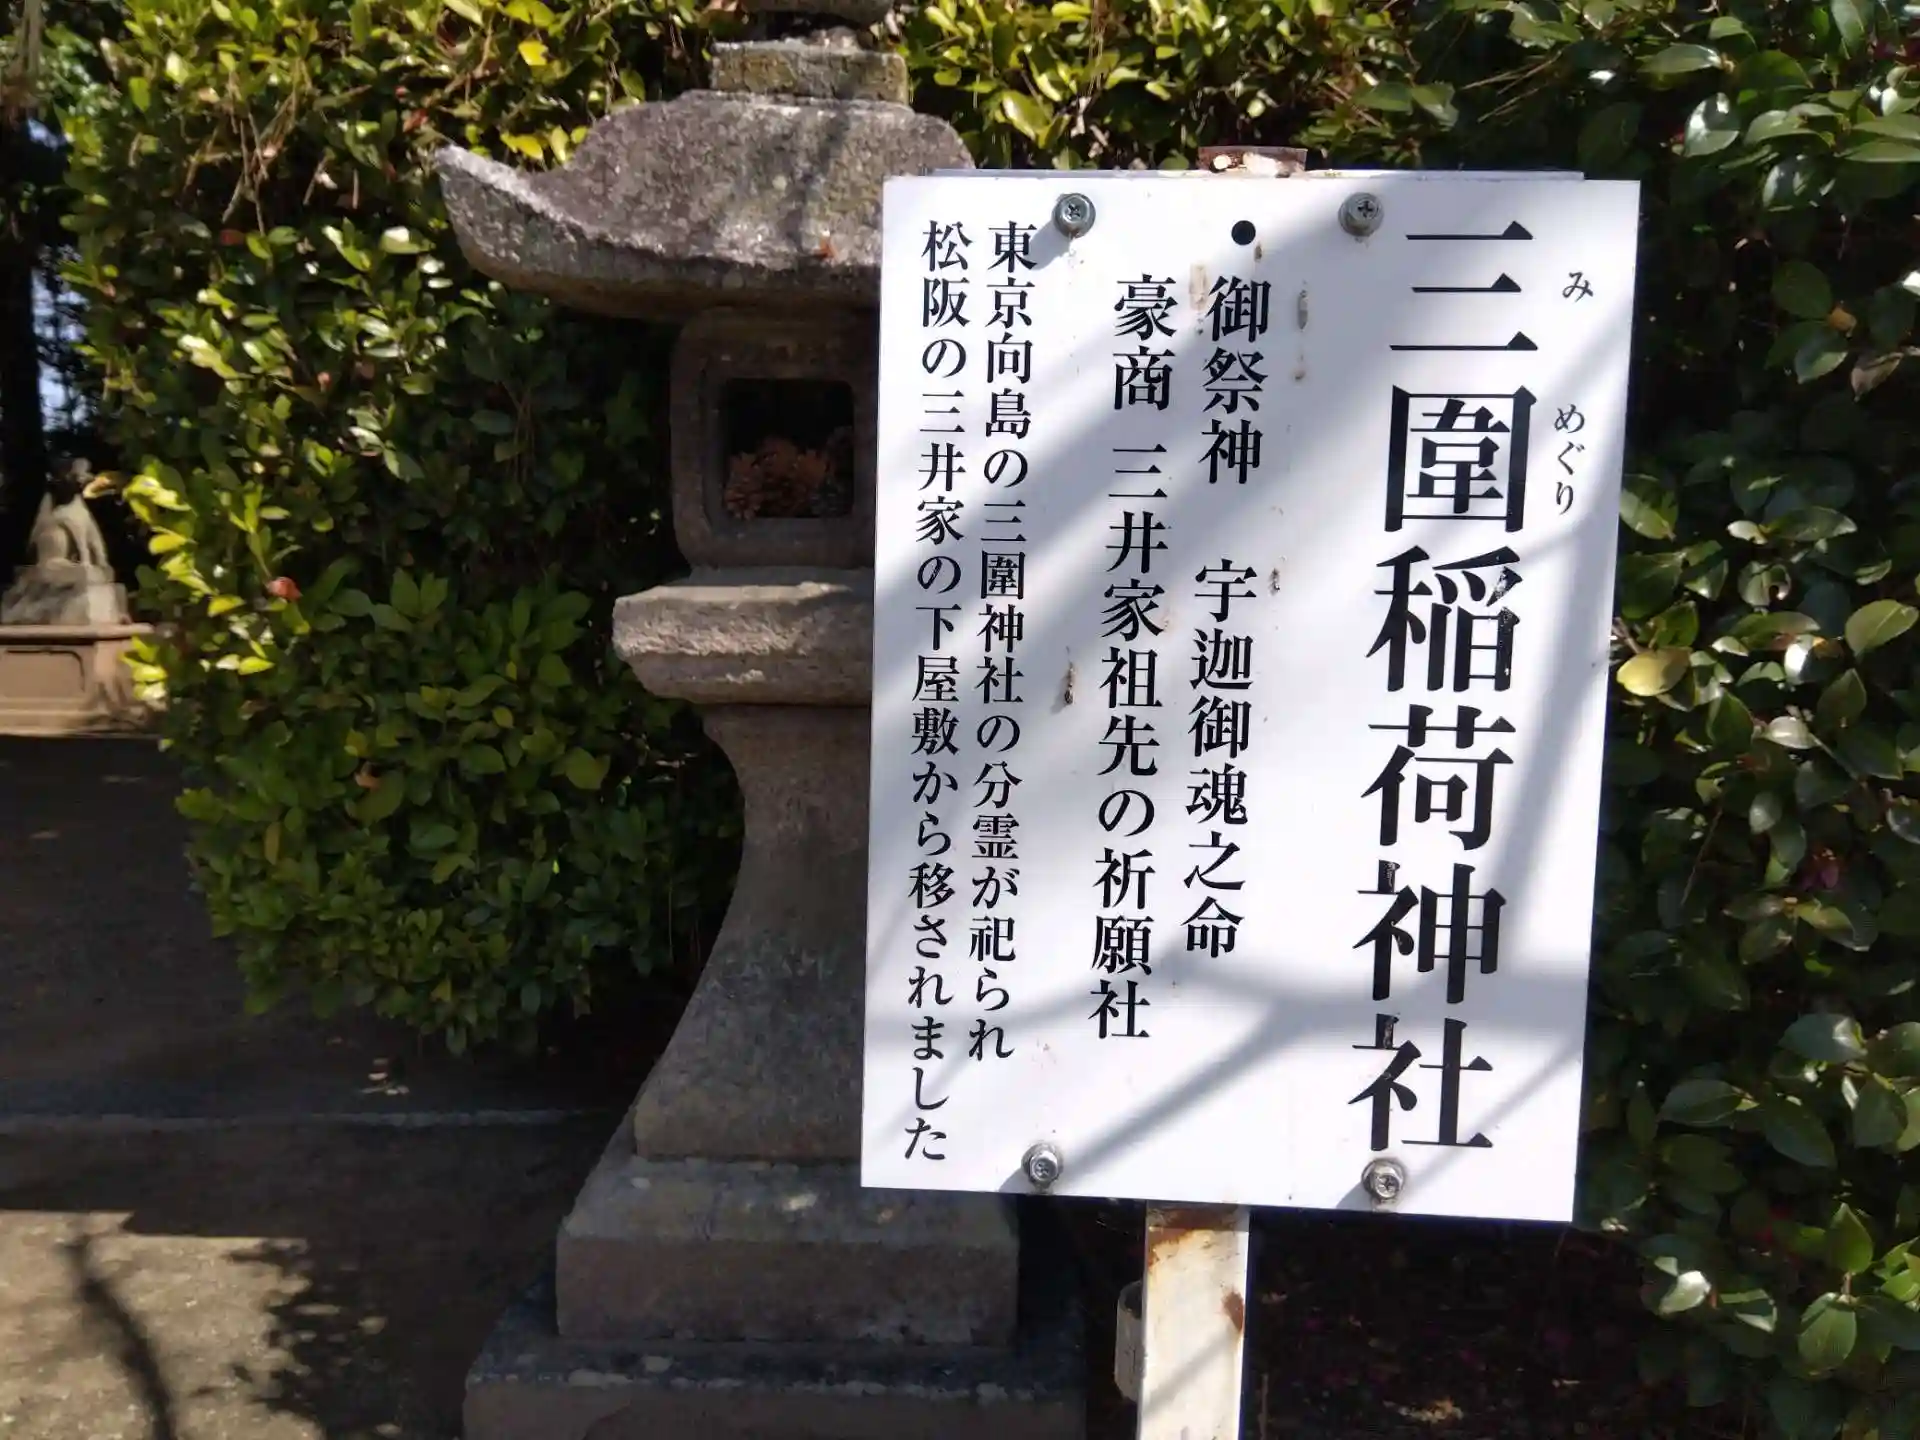 三圍稲荷神社
み めぐり
御祭神 宇迦御魂之命
豪商 三井家祖先の祈願社
東京向島の三圍神社の分霊が祀られ
松阪の三井家の下屋敷から移されました